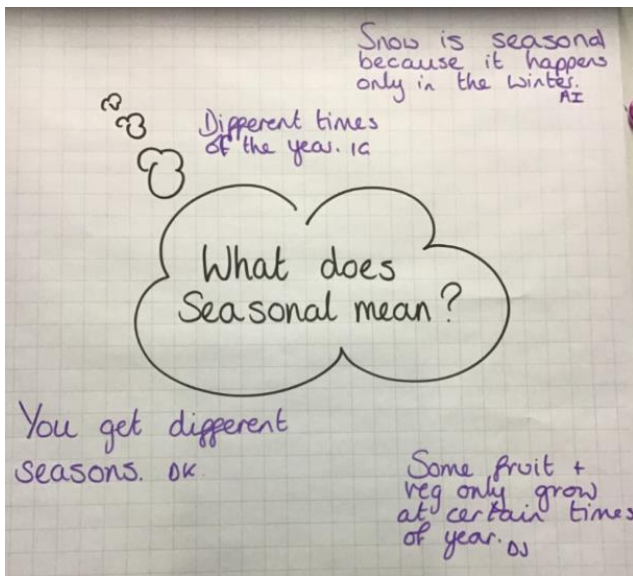 Snow is seasonal
because it happens
only in the winter.
AI
Different times
of the year. IG
What does
Seasonal mean?
You get different
seasons. DK
Some fruit +
veg only grow
at certain times
of year. DJ